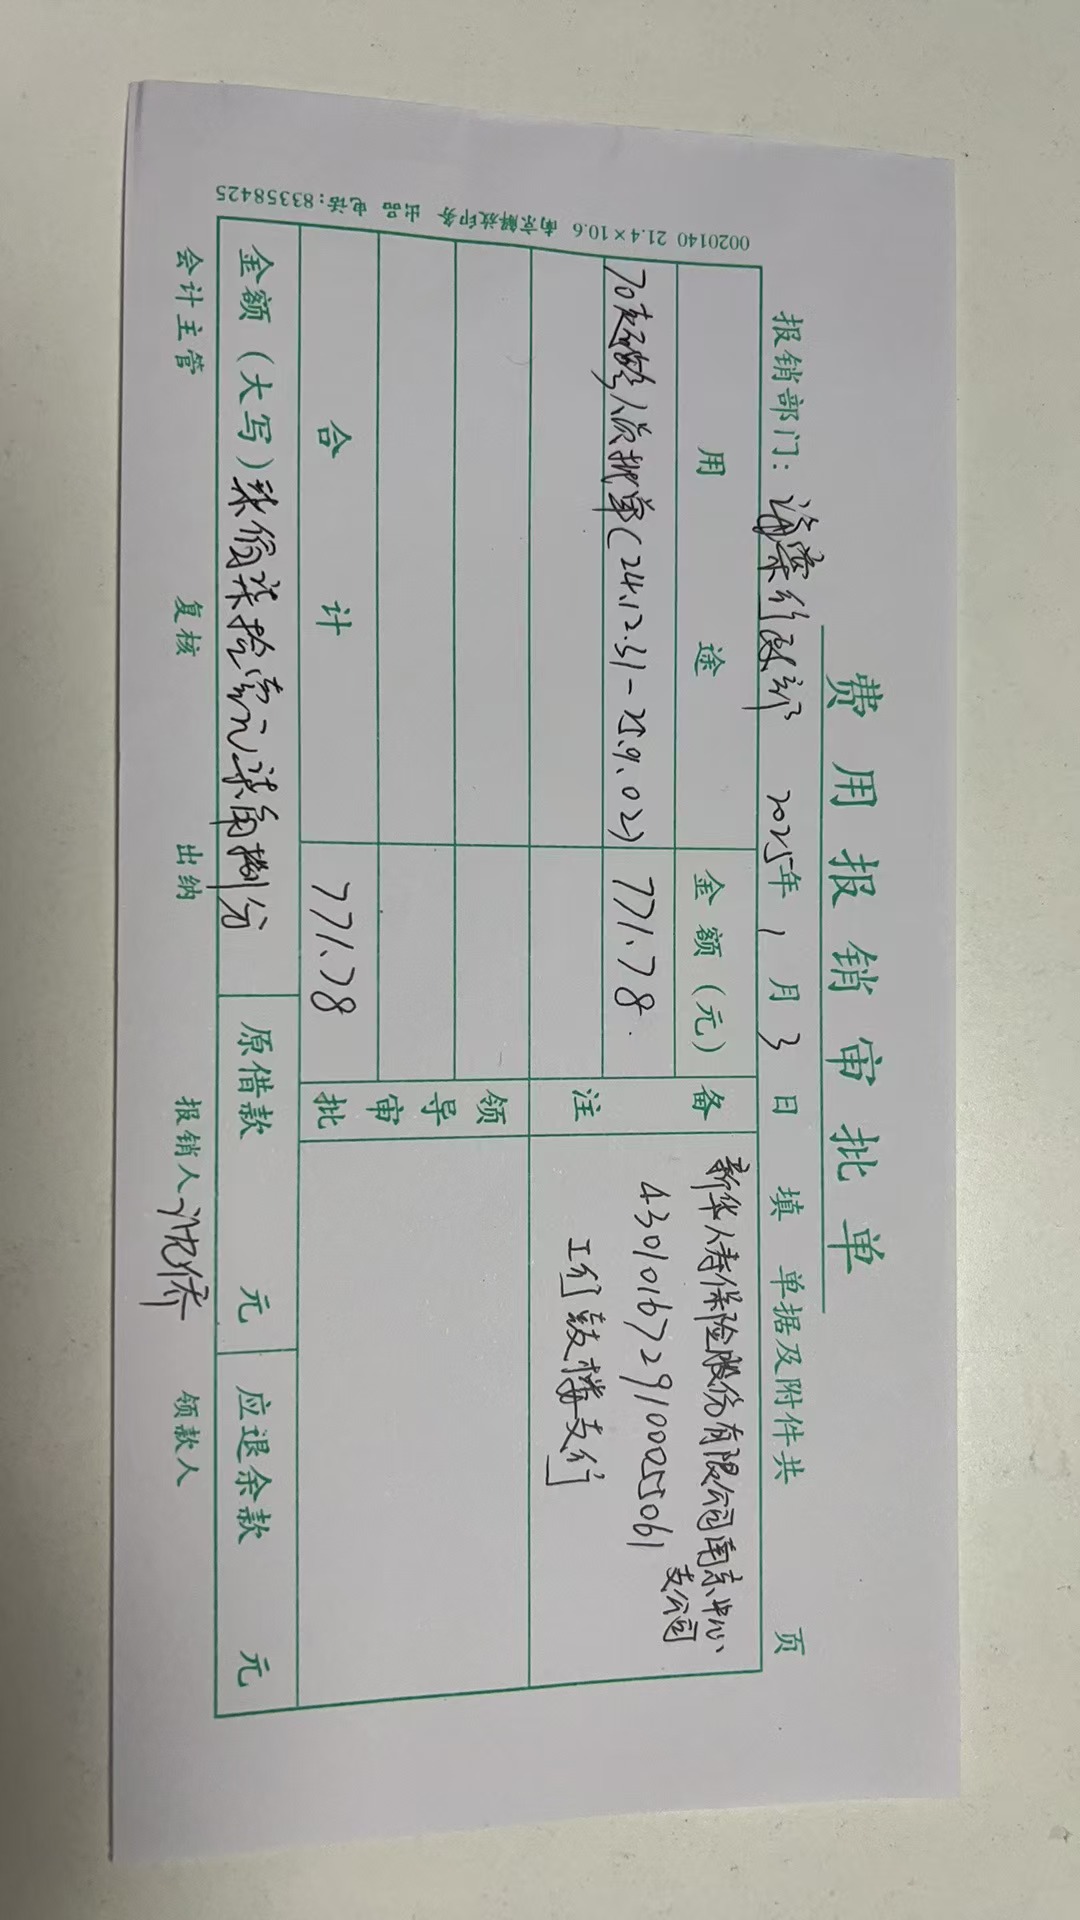 费用报销审批单
报销部门: 海棠行政部 2025年1月3日 填 单据及附件共 页
用途 金额(元) 备注
70赵 人员批单(24.12.31-25.9.02) 771.78.
新华人寿保险股份有限公司南京中心
支公司
4301016729100055061
工行鼓楼支行
合计 771.78
领导审批
金额(大写)柒佰柒拾壹元柒角捌分 原借款 元 应退余款 元
会计主管 复核 出纳 报销人 沈侨 领款人
0020140 21.4×10.6 南京解放印务 出品 电话:83358425